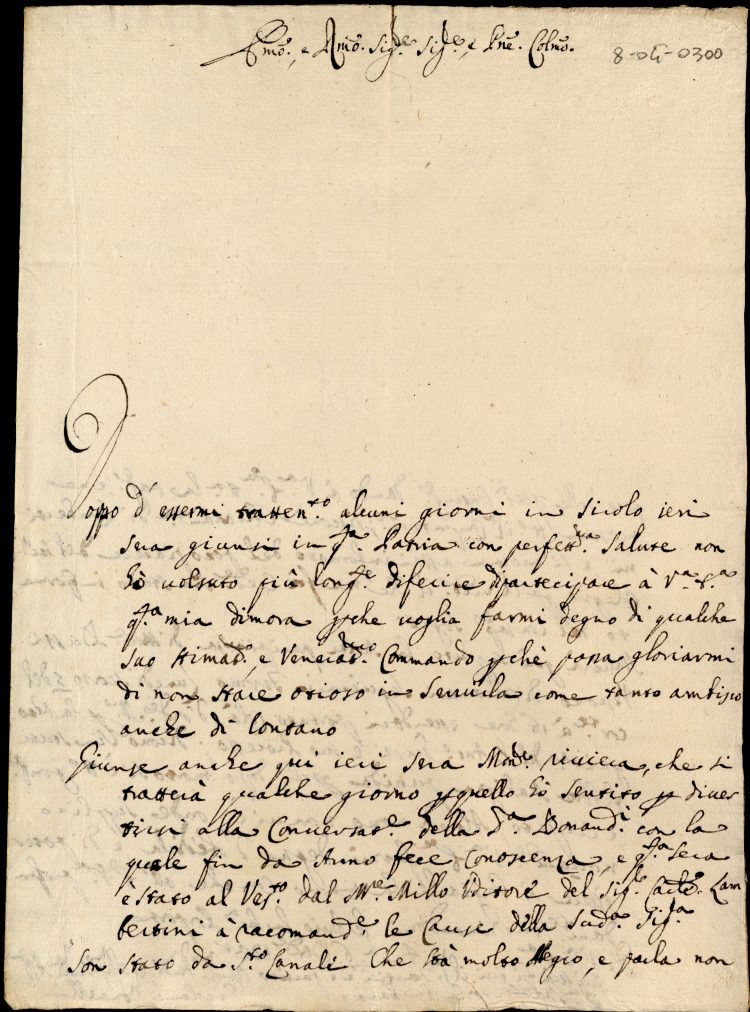 Emo., e Rmo. Sigre. Sigre., e Pne. Colmo.
8-04-0300
Doppo d'essermi trattento. alcuni giorni in Sicolo ieri
sera giunsi in qta. Patria con perfettma. salute non
hò volsuto più longte. diferire di partecipare à Va. Ema.
qta. mia dimora pche voglia farmi degno di qualche
suo stimado., e Veneratmo. Commando pchè possa gloriarmi
di non stare otioso in Servirla come tanto ambisco
anche di lontano
Giunse anche qui ieri sera Monre. riviera, che si
tratterà qualche giorno pquello hò sentito p diver
tirsi alla Conversate. della Sa. Bonaudi con la
quale fin da Anno fece conoscenza, e qta. sera
è stato al Vesto. dal Mre. Millo Uditore del Sigre. Carle. Lam
bertini à racomande. le Cause della Suda. Siga.
Son stato da Sto. Canali Che stà molto Allegro, e parla non